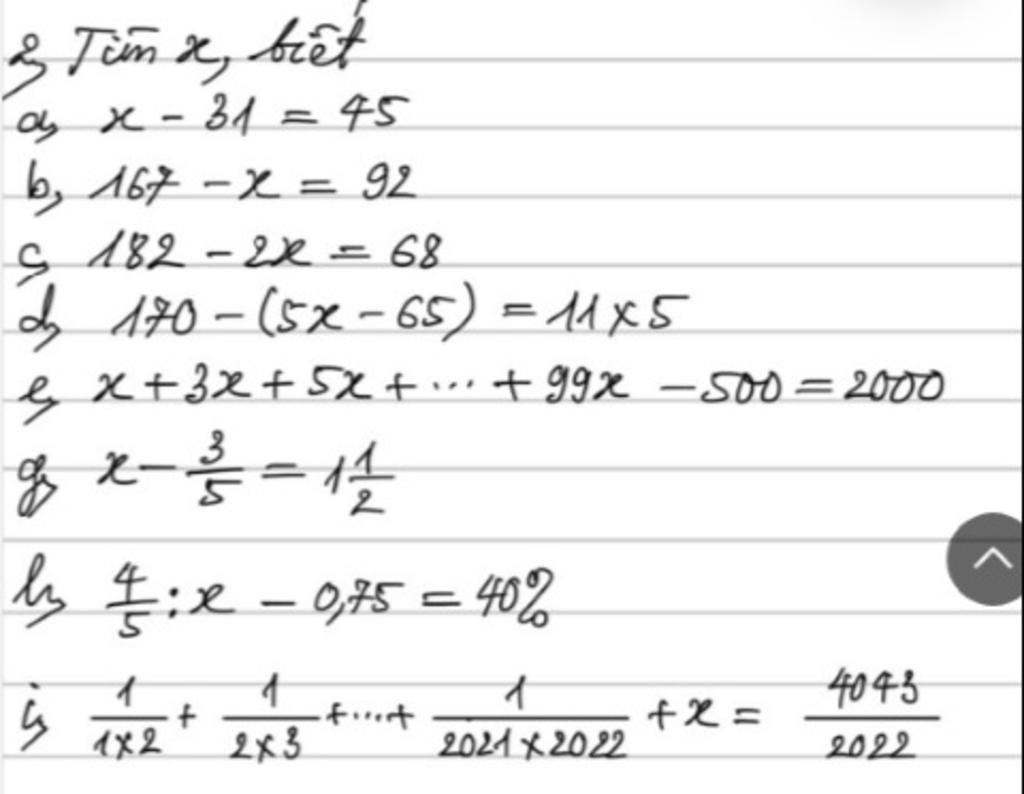 2, Tìm x, biết
a, x - 31 = 45
b, 167 - x = 92
c, 182 - 2x = 68
d, 170 - (5x - 65) = 11 x 5
e, x + 3x + 5x + ... + 99x - 500 = 2000
g, x - 3/5 = 1 1/2
h, 4/5 : x - 0,75 = 40%
i, 1/(1x2) + 1/(2x3) + ... + 1/(2021x2022) + x = 4043/2022